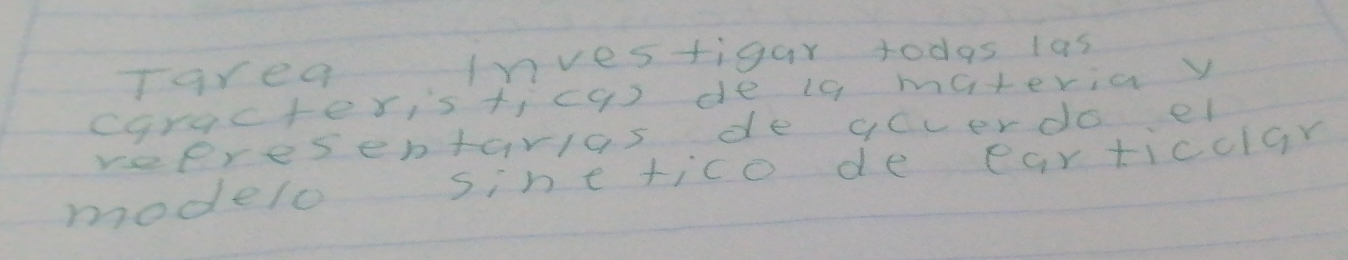 Tarea Investigar todas las
caracteristicas de la materia y
representarlas de acuerdo el
modelo sinetico de particclar